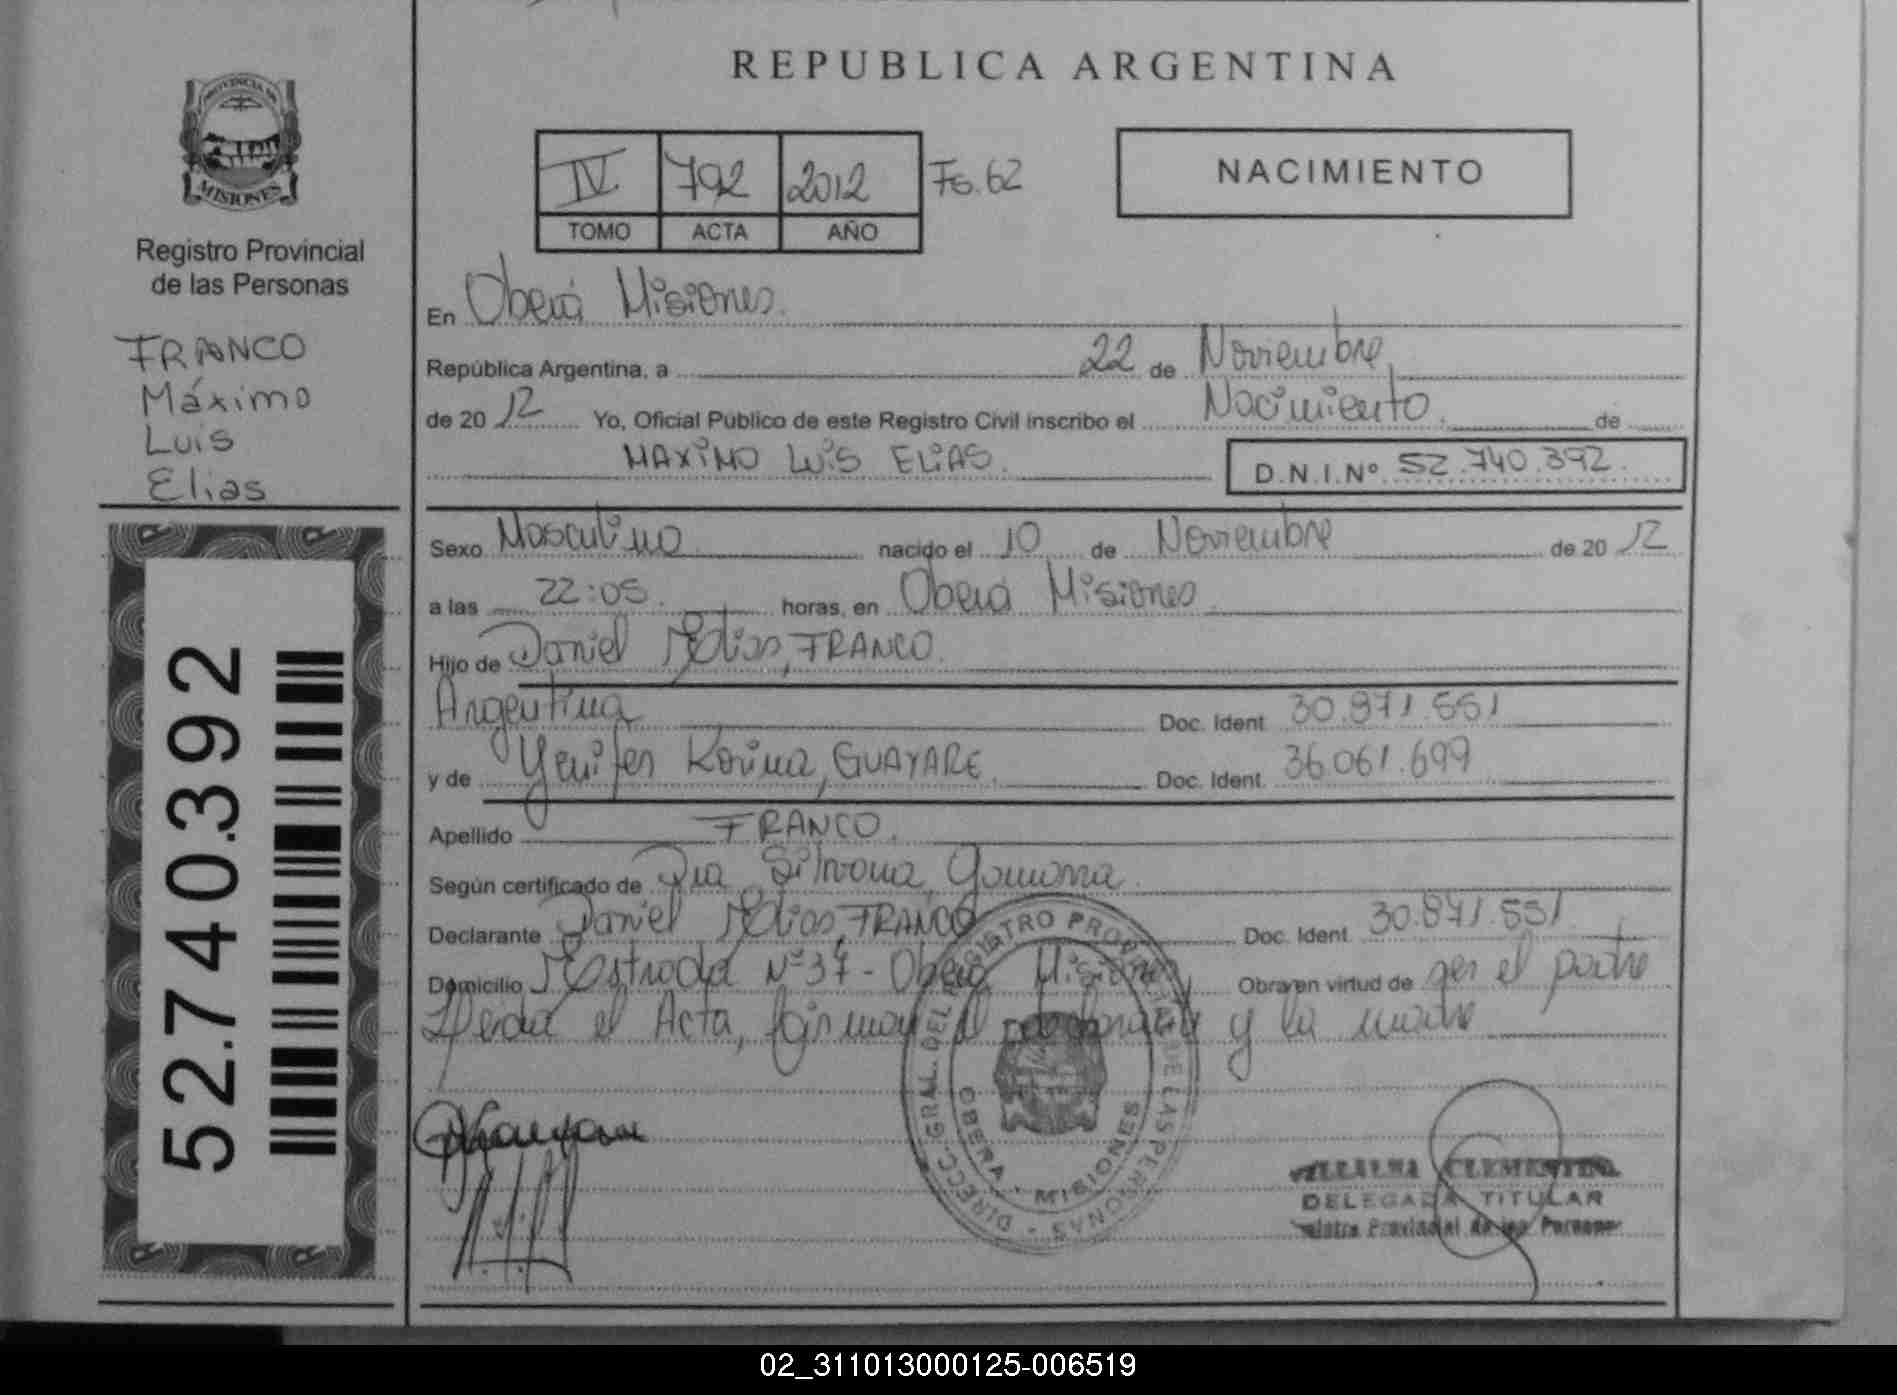 PROVINCIA DE
MISIONES
Registro Provincial
de las Personas
FRANCO
Máximo
Luis
Elias
52.740.392
REPUBLICA ARGENTINA
IV 792 2012 Fo. 62
TOMO ACTA AÑO
NACIMIENTO
En Oberá Misiones.
República Argentina, a 22 de Noviembre
de 20 12 Yo, Oficial Público de este Registro Civil inscribo el Nacimiento. de
MAXIMO LUIS ELIAS. D.N.I.Nº 52.740.392.
Sexo Masculino nacido el 10 de Noviembre de 20 12
a las 22:05. horas, en Oberá Misiones
Hijo de Daniel Elias, FRANCO.
Argentina Doc. Ident. 30.871.551
y de Yenifer Karina, GUAYARE. Doc. Ident. 36.061.699
Apellido FRANCO.
Según certificado de Dra Silvana
Declarante Daniel Elias, FRANCO Doc. Ident. 30.871.551
Domicilio Estrada Nº 37 - Oberá Misiones Obra en virtud de ser el padre
el Acta, firman el declarante y la madre
DIRECC. GRAL. DEL REGISTRO PROVINCIAL DE LAS PERSONAS
OBERA - MISIONES
CLEMENTINA
DELEGADA TITULAR
Registro Provincial de las Personas
02_311013000125-006519